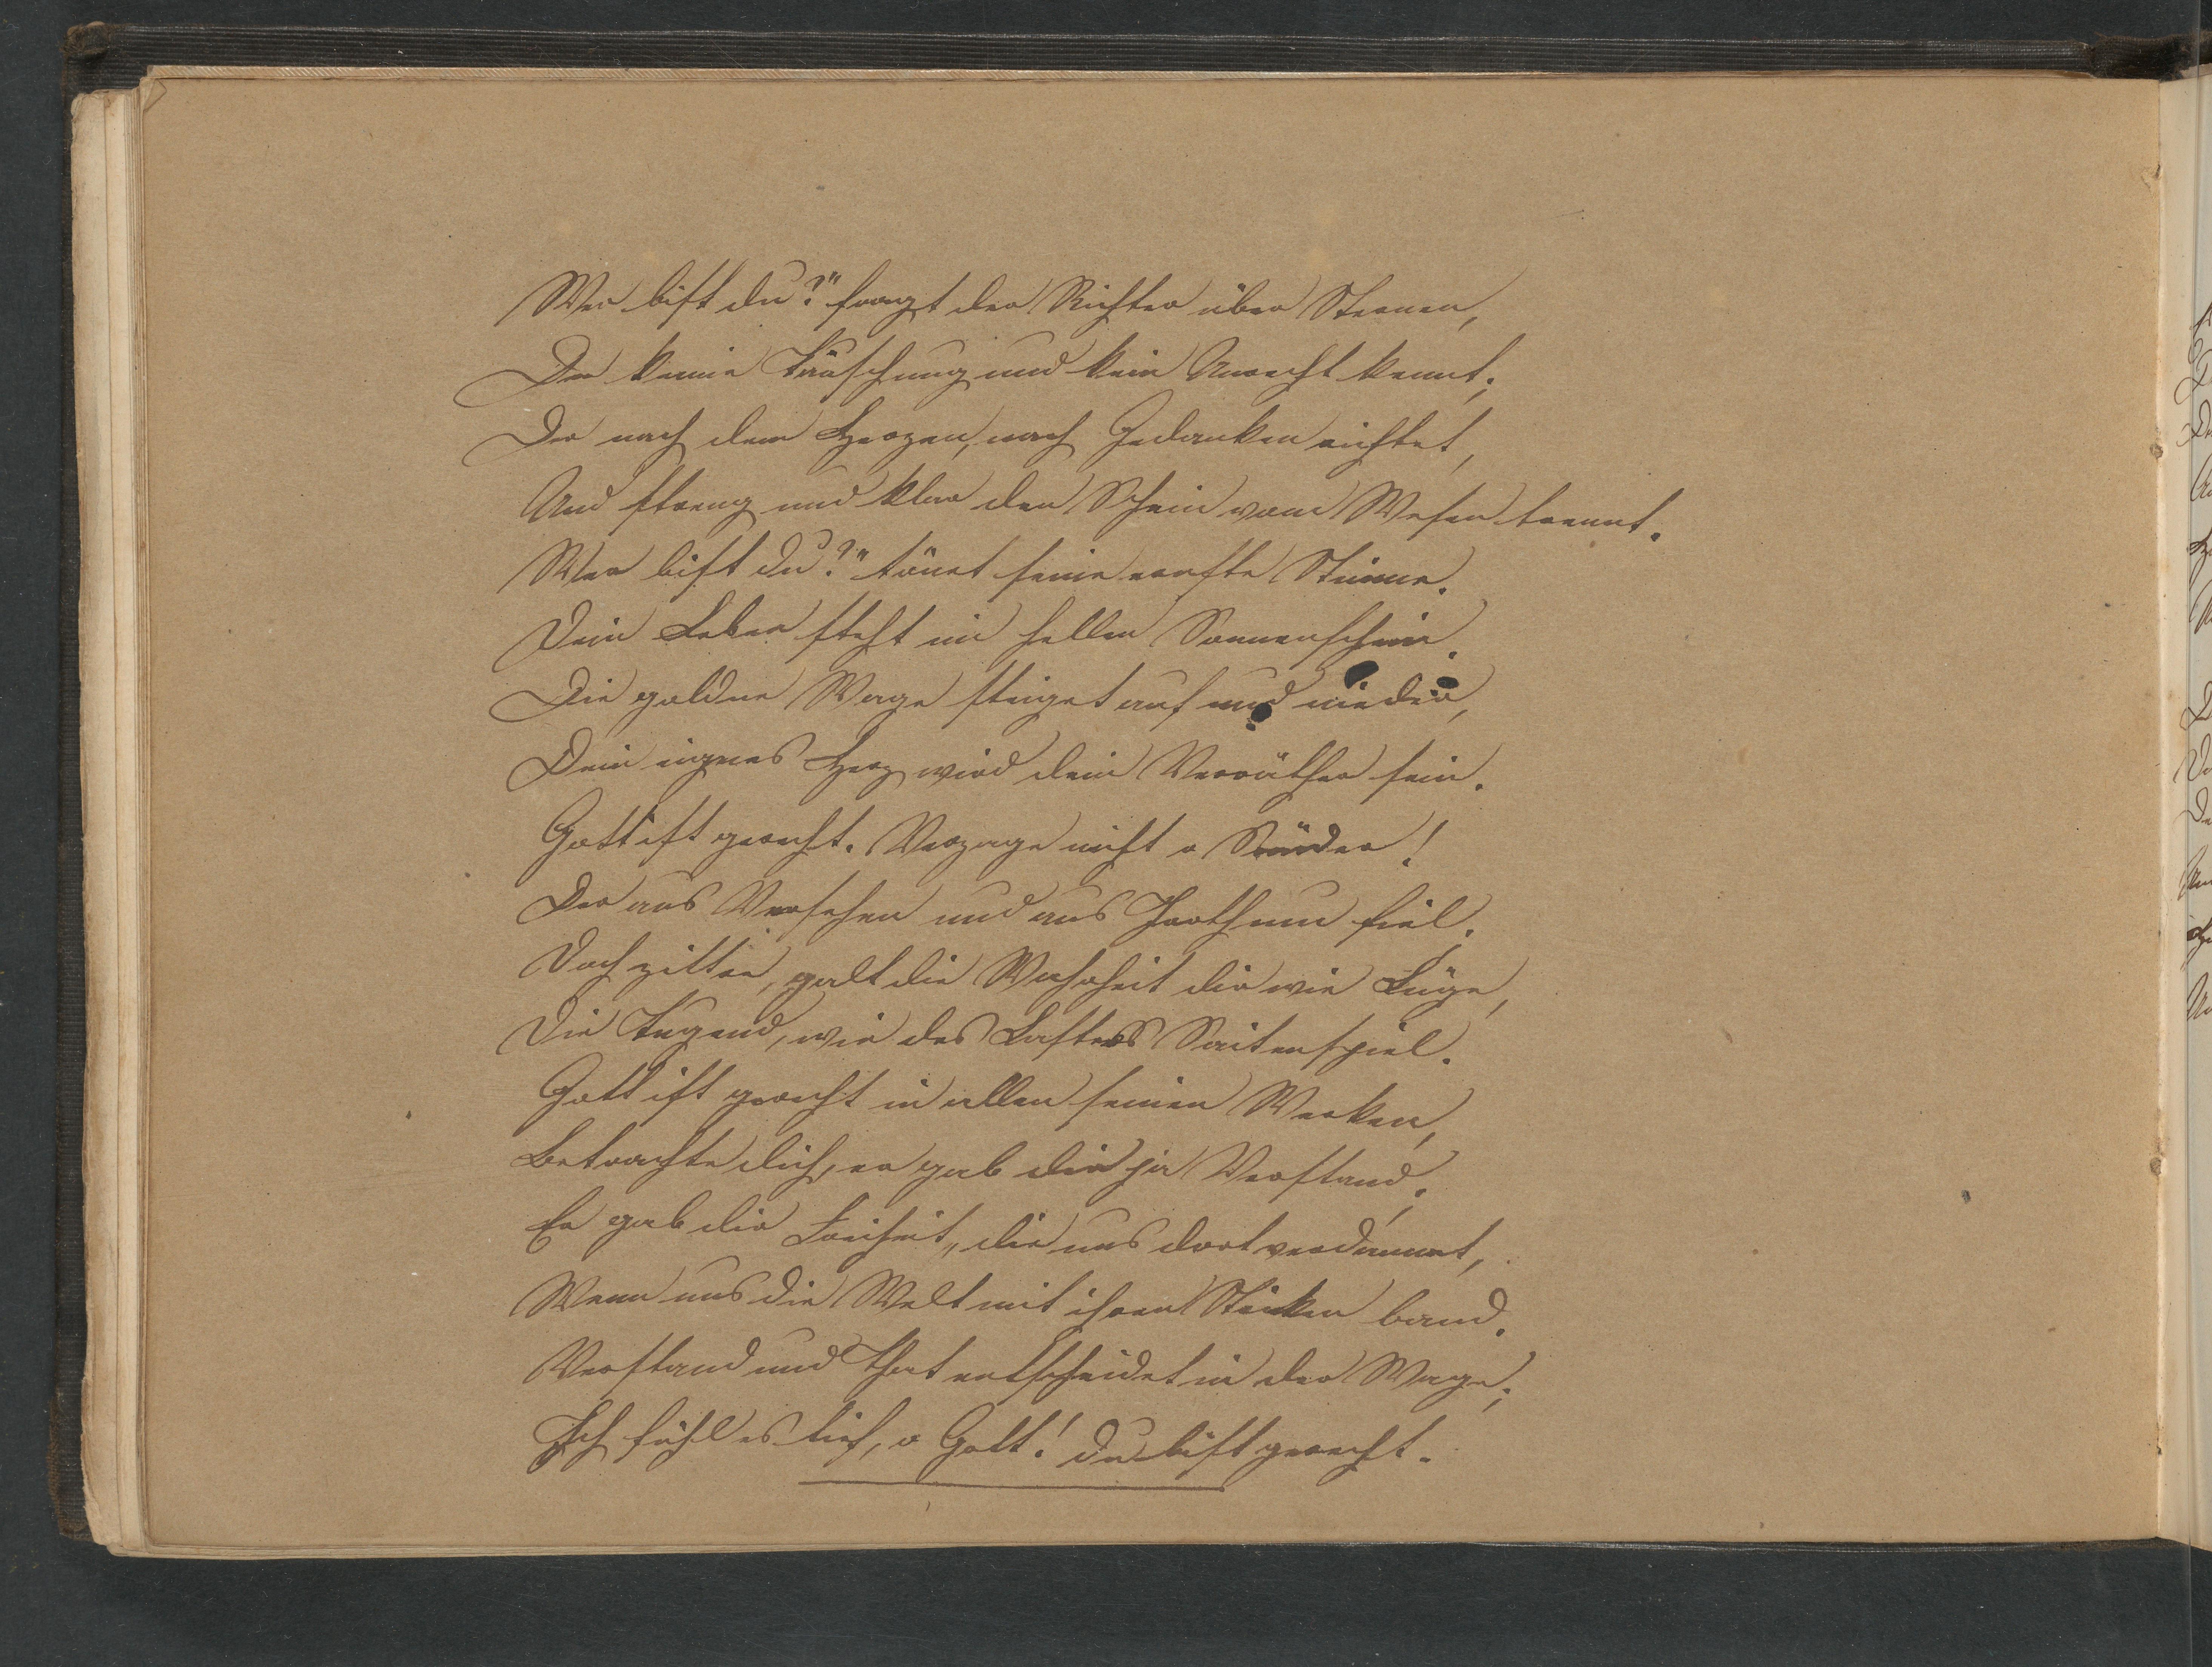 Wer bist du?" fragt der Richter über Sternen,
Der keine Täuschung und kein Unrecht kennt;
Der nach dem Herzen, nach Gedanken richtet,
Und streng und klar den Schein vom Wesen trennt.
Wer bist du?" tönet seine ernste Stimme.
Dein Leben steht im hellen Sonnenschein.
Die goldne Wage steiget auf und nieder,
Dein eignes Herz wird dein Verräther sein.
Gott ist gerecht. Verzage nicht o Sünder!
Der aus Versehen und aus Irrthum fiel.
Doch zittre, galt die Wahrheit dir wie Lüge,
Die Tugend, wie des Lasters Saitenspiel.
Gott ist gerecht in allen seinen Werken,
Betrachte dich, er gab dir ja Verstand;
Er gab dir Freiheit, die uns dort verdammt,
Wenn uns die Welt mit ihren Stricken band.
Verstand und That entscheidet in der Wage;
Ich fühl es tief, o Gott! du bist gerecht.